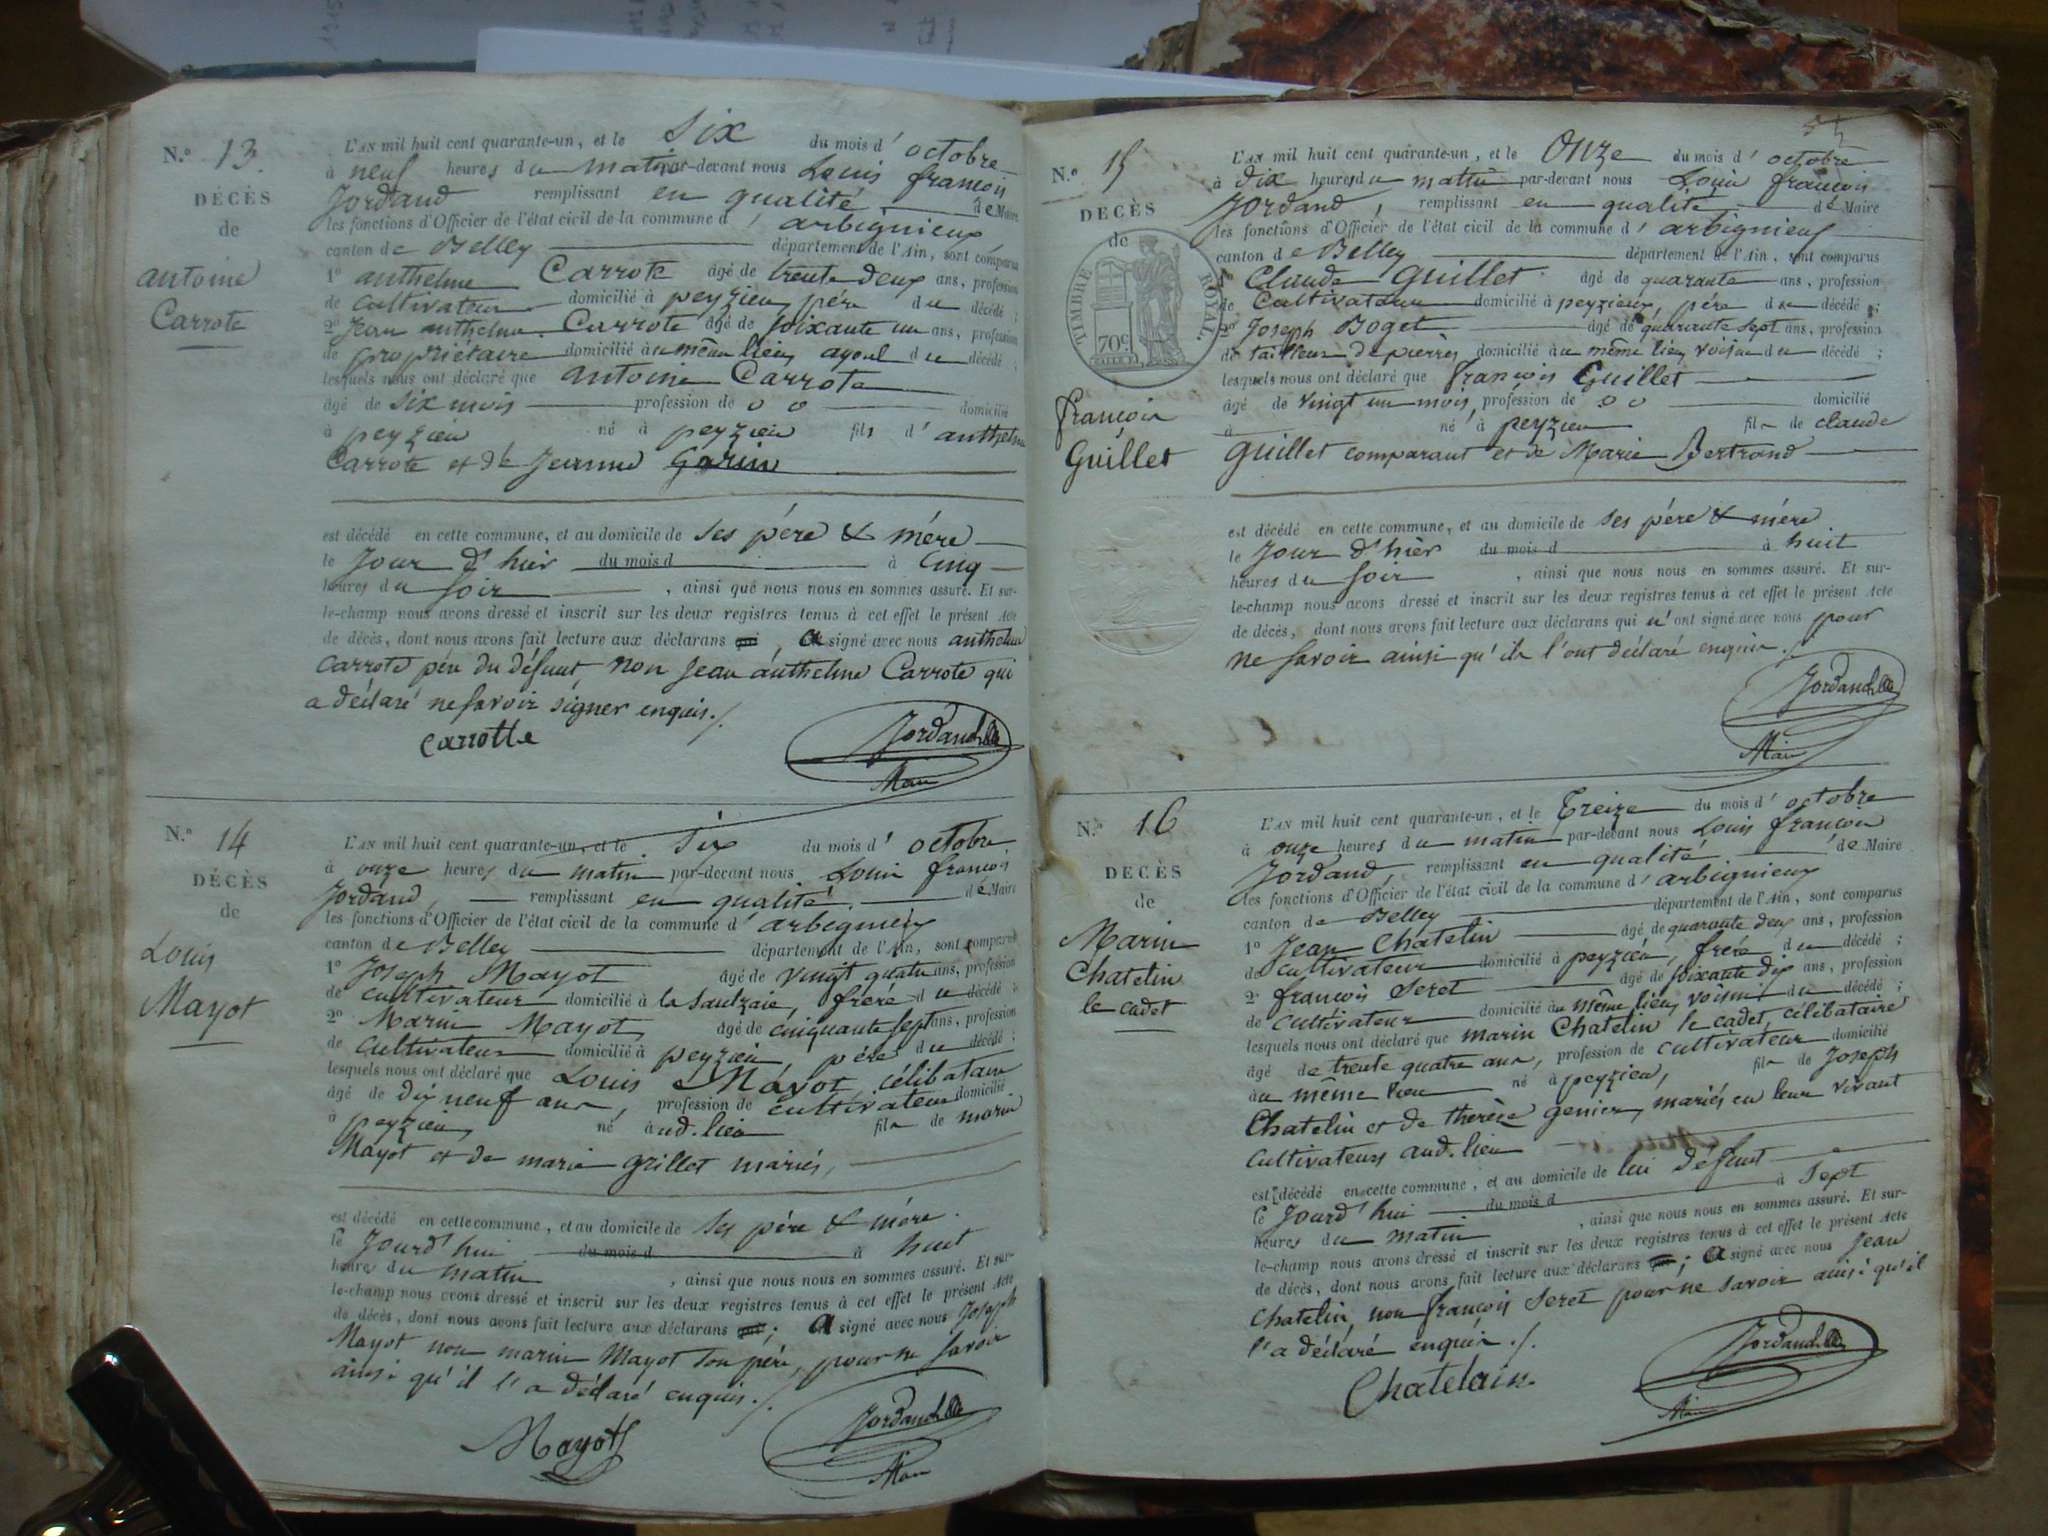 N.o 13
DÉCÈS
de
antoine
Carrote
L'AN mil huit cent quarante-un, et le six du mois d'octobre
à neuf heures du matin par-devant nous Louis françois
Jordand remplissant en qualité de Maire
les fonctions d'Officier de l'état civil de la commune d'arbignieux
canton de Belley département de l'Ain, sont comparus
1º anthelme Carrote âgé de trente deux ans, profession
de cultivateur domicilié à peyzieu, père du décédé ;
2º Jean anthelme Carrote âgé de soixante un ans, profession
de propriétaire domicilié au même lieu, ayeul du décédé ;
lesquels nous ont déclaré que antoine Carrote
âgé de six mois profession de o o domicilié
à peyzieu né à peyzieu fils d'anthelme
Carrote et de Jeanne Garin
est décédé en cette commune, et au domicile de ses père & mère
le Jour d'hier du mois d à Cinq
heures du soir , ainsi que nous nous en sommes assuré. Et sur-
le-champ nous avons dressé et inscrit sur les deux registres tenus à cet effet le présent Acte
de décès, dont nous avons fait lecture aux déclarans qui, a signé avec nous anthelme
Carrote père du défunt, non Jean anthelme Carrote qui
a déclaré ne savoir signer enquis ./.
carrotte
Jordand
Maire
N.o 14
DÉCÈS
de
Louis
Mayot
L'AN mil huit cent quarante-un, et le six du mois d'octobre
à onze heures du matin par-devant nous Louis françois
Jordand, remplissant en qualité de Maire
les fonctions d'Officier de l'état civil de la commune d'arbignieux
canton de Belley département de l'Ain, sont comparus
1º Joseph Mayot âgé de vingt quatre ans, profession
de cultivateur domicilié à la Saulzaie, frère du décédé ;
2º Marin Mayot, âgé de cinquante sept ans, profession
de cultivateur domicilié à peyzieu, père du décédé ;
lesquels nous ont déclaré que Louis Mayot, célibataire
âgé de dix neuf ans, profession de cultivateur domicilié
à peyzieu, né aud. lieu fils de marin
Mayot et de marie grillet mariés,
est décédé en cette commune, et au domicile de ses père & mère.
le Jourd'hui du mois d à huit
heures du matin , ainsi que nous nous en sommes assuré. Et sur-
le-champ nous avons dressé et inscrit sur les deux registres tenus à cet effet le présent Acte
de décès, dont nous avons fait lecture aux déclarans qui ; a signé avec nous Joseph
Mayot non marin Mayot son père, pour ne savoir
ainsi qu'il l'a déclaré enquis ./.
Mayot
Jordand
Maire
N.o 15
DÉCÈS
de
TIMBRE ROYAL.
70c.
françois
Guillet
L'AN mil huit cent quarante-un, et le Onze du mois d'octobre
à dix heures du matin par-devant nous Louis françois
Jordand, remplissant en qualité de Maire
les fonctions d'Officier de l'état civil de la commune d'arbignieux
canton de Belley département de l'Ain, sont comparus
1º Claude Guillet âgé de quarante ans, profession
de Cultivateur domicilié à peyzieux, père du décédé ;
2º Joseph Boget âgé de quarante sept ans, profession
de tailleur de pierres domicilié au même lieu, voisin du décédé ;
lesquels nous ont déclaré que françois Guillet
âgé de vingt un mois, profession de o o domicilié
à né à peyzieu fils de claude
guillet comparant et de Marie Bertrand
est décédé en cette commune, et au domicile de ses père & mère
le Jour d'hier du mois d à huit
heures du soir , ainsi que nous nous en sommes assuré. Et sur-
le-champ nous avons dressé et inscrit sur les deux registres tenus à cet effet le présent Acte
de décès, dont nous avons fait lecture aux déclarans qui n'ont signé avec nous pour
ne savoir ainsi qu'ils l'ont déclaré enquis ./.
Jordand
Maire
N.o 16
DÉCÈS
de
Marin
Chatelin
le cadet
L'AN mil huit cent quarante-un, et le Treize du mois d'octobre
à onze heures du matin par-devant nous Louis françois
Jordand, remplissant en qualité de Maire
les fonctions d'Officier de l'état civil de la commune d'arbignieux
canton de Belley département de l'Ain, sont comparus
1º Jean Chatelin âgé de quarante deux ans, profession
de cultivateur domicilié à peyzieu, frère du décédé ;
2º françois Seret âgé de soixante dix ans, profession
de cultivateur domicilié au même lieu, voisin du décédé ;
lesquels nous ont déclaré que marin Chatelin le cadet, célibataire
âgé de trente quatre ans, profession de cultivateur domicilié
au même lieu né à peyzieu, fils de Joseph
Chatelin et de therèse genier, mariés en leur vivant
cultivateurs aud. lieu
est décédé en cette commune, et au domicile de lui défunt
le Jourd'hui du mois d à sept
heures du matin , ainsi que nous nous en sommes assuré. Et sur-
le-champ nous avons dressé et inscrit sur les deux registres tenus à cet effet le présent Acte
de décès, dont nous avons fait lecture aux déclarans qui ; a signé avec nous Jean
chatelin, non françois Seret pour ne savoir ainsi qu'il
l'a déclaré enquis ./.
Chatelain
Jordand
Maire